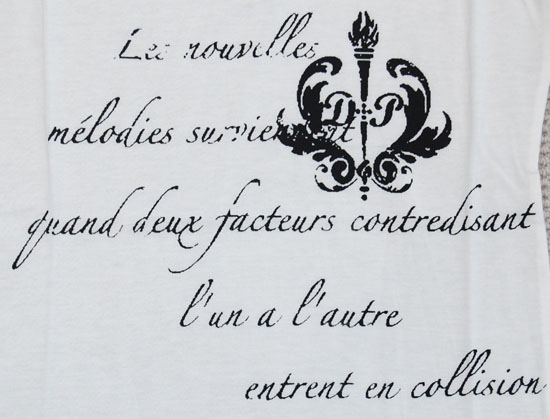 Les nouvelles
D P
mélodies surviennent
quand deux facteurs contredisant
l'un a l'autre
entrent en collision